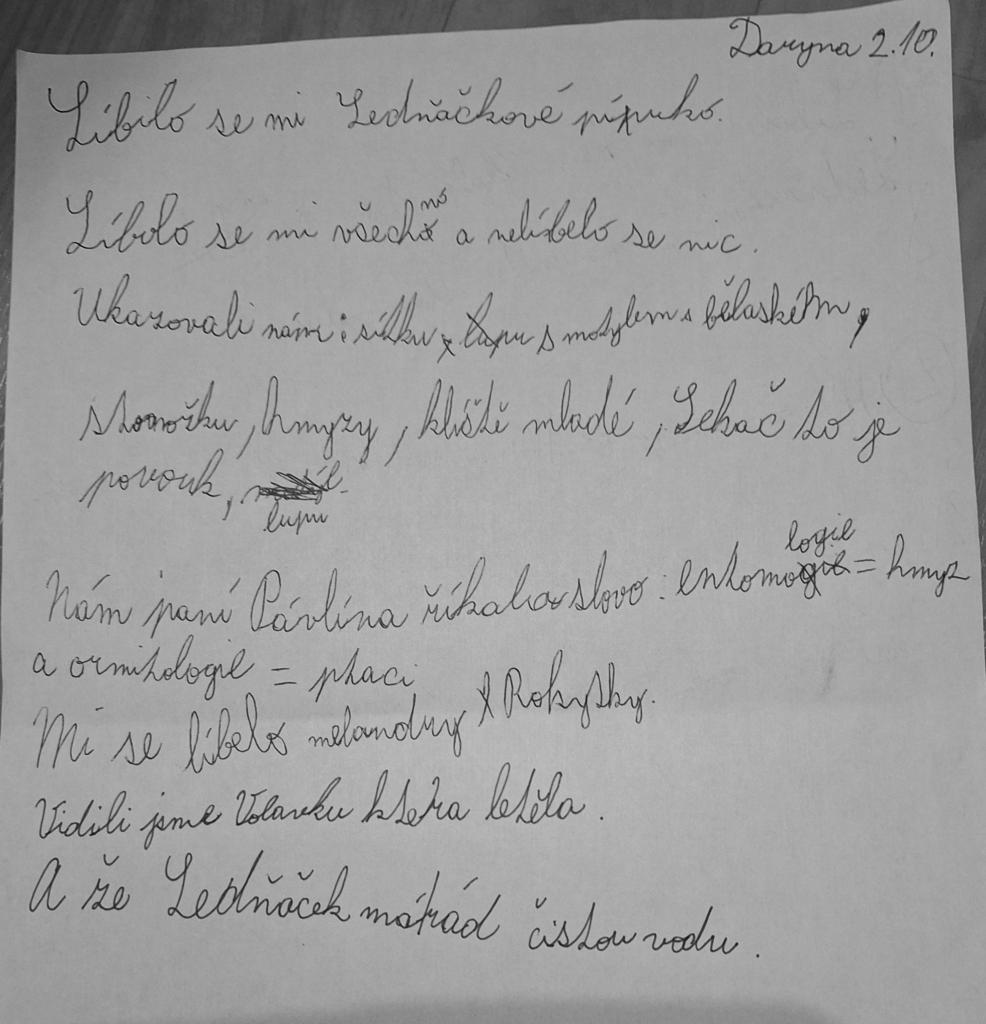 Daryna 2.10.
Líbiló se mi Ledňáčkové pírko.
Líbolo se mi všechnó a nelíbelo se nic.
Ukazovali nám: sítku s motylem s bělaskétm,
stonožku, hmyzy, klíště mladé, Sekač to je
povouk, lupu
Nám paní Pávlína říkala slovo: entomologie = hmyz
a ornitologie = ptaci
Mi se líbelo melandry Rokytky.
Vidili jsme Volavku ktera letěla.
A že Ledňáček má rád čistou vodu.